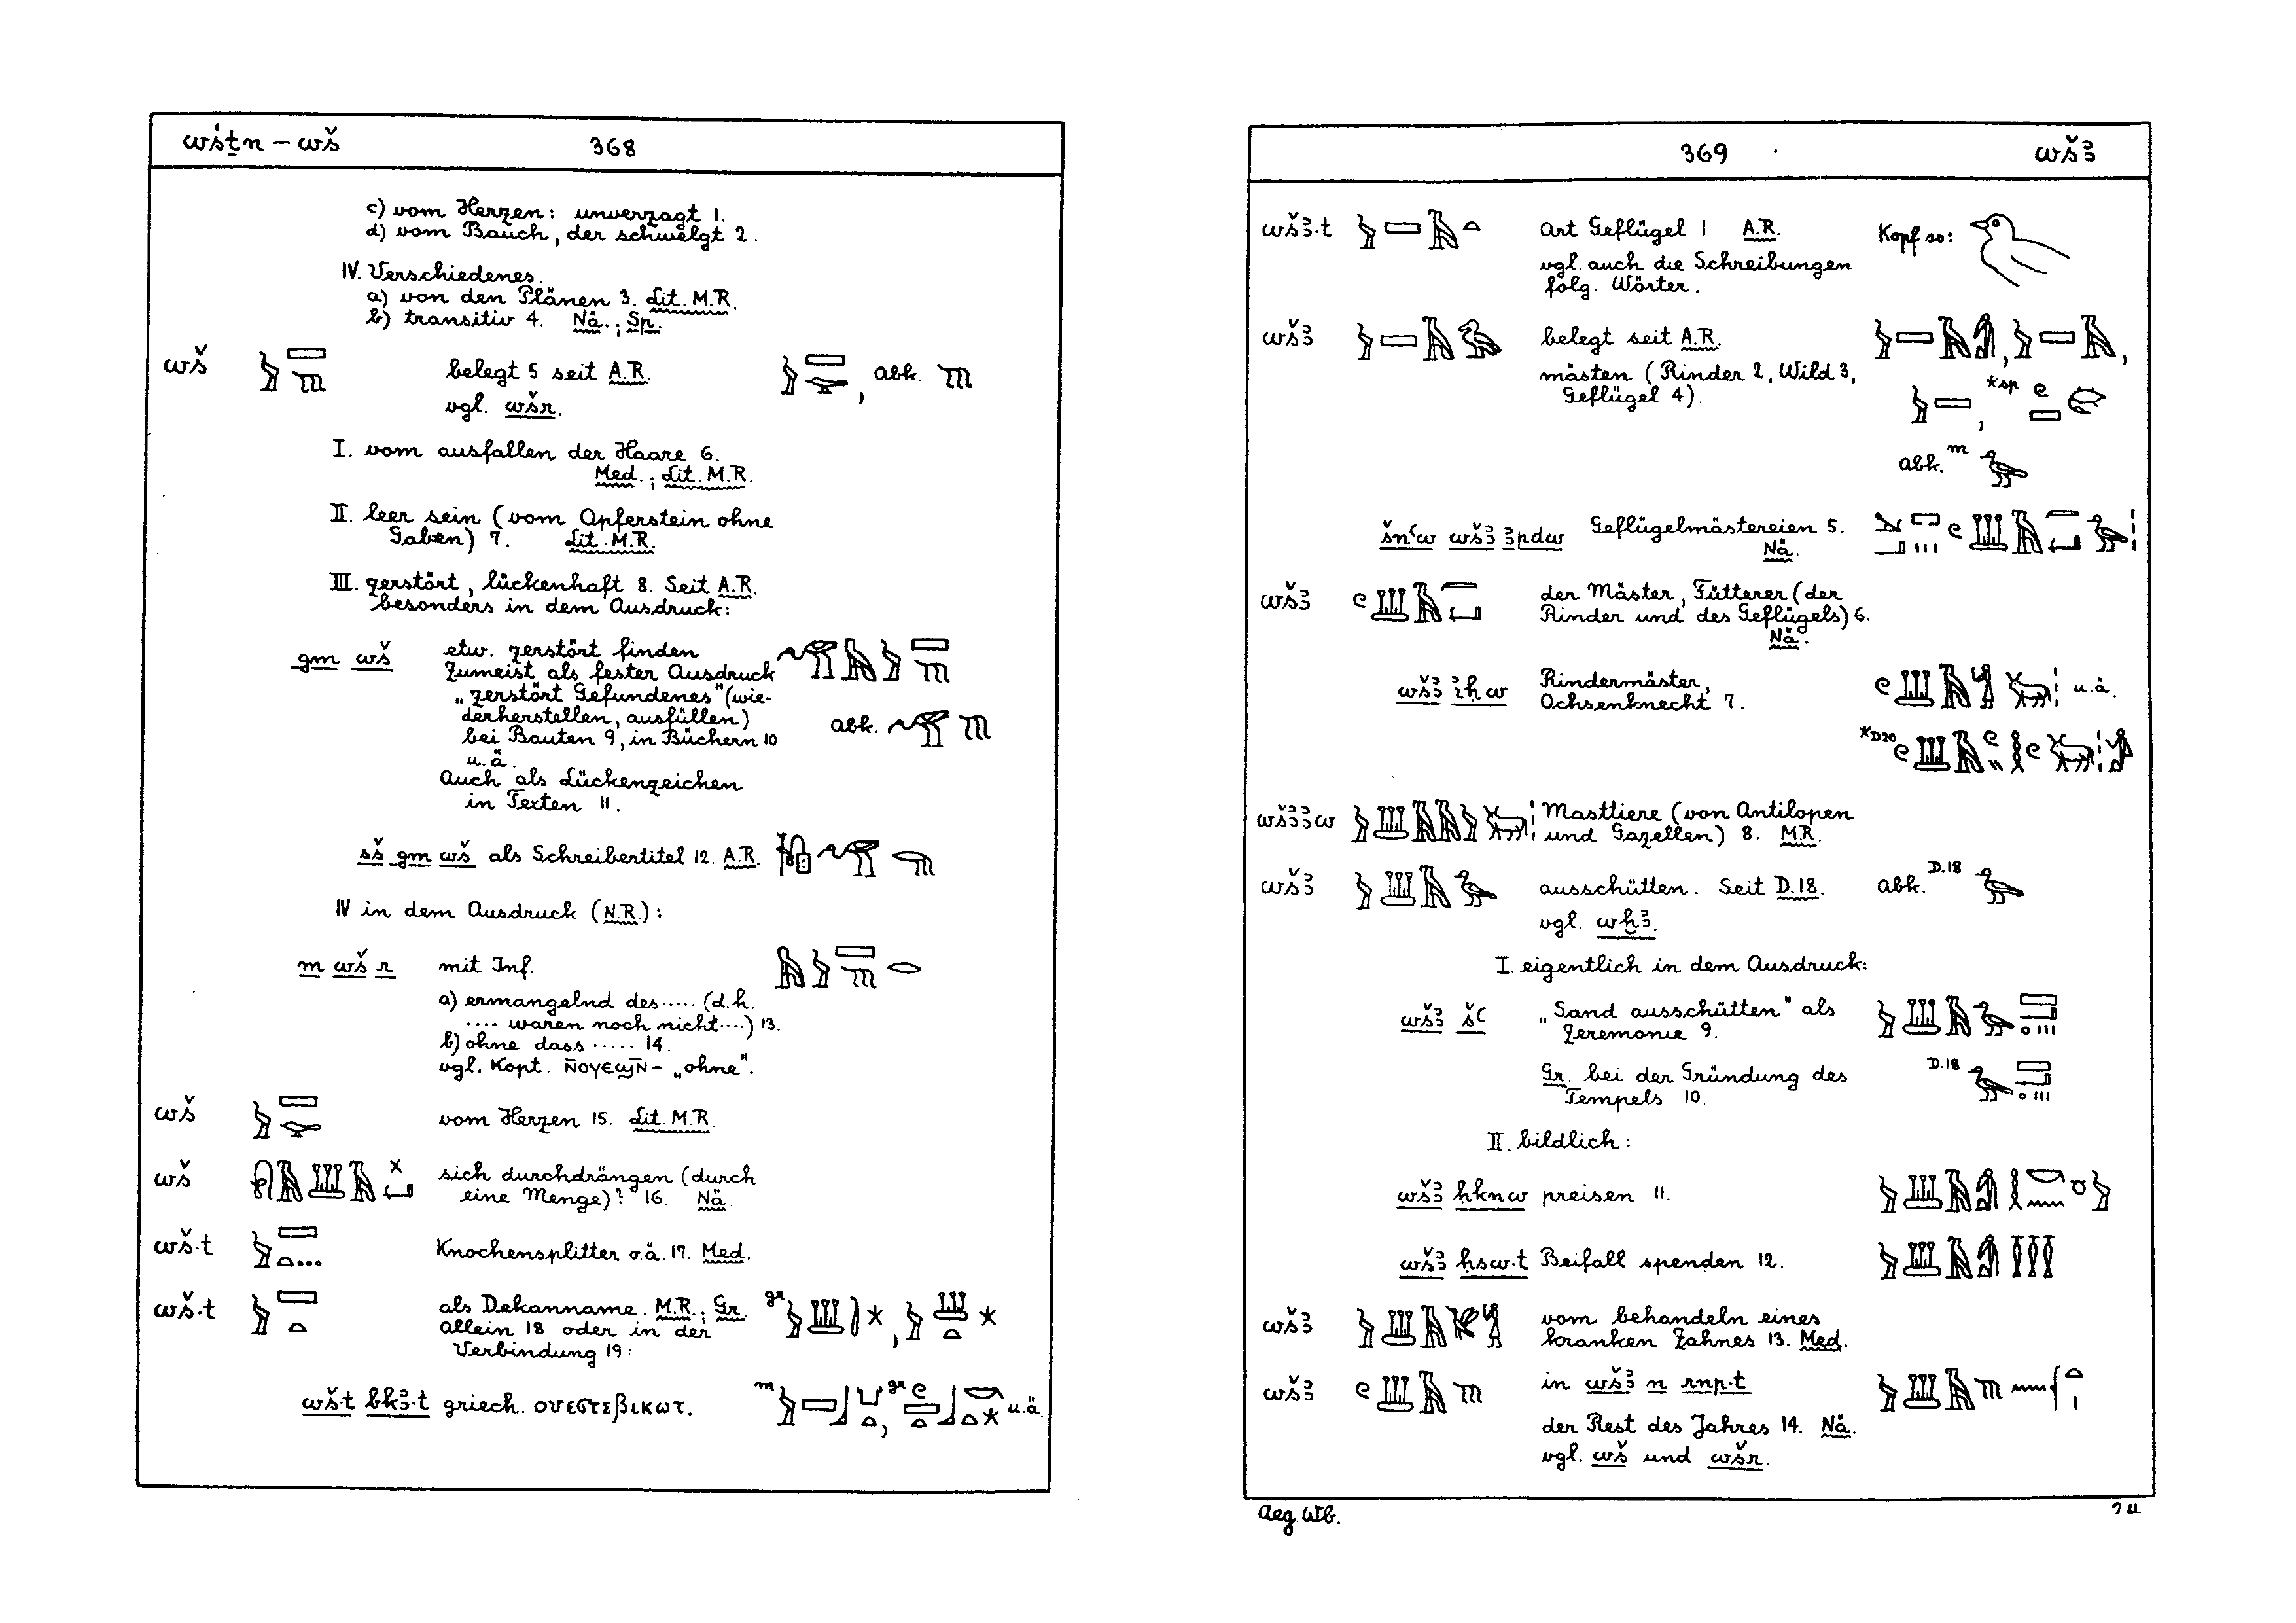 wśṯn – wš 368
c) vom Herzen: unverzagt 1.
d) vom Bauch, der schwelgt 2.
IV. Verschiedenes.
a) von den Plänen 3. Lit. M.R.
b) transitiv 4. Nä.; Sp.
wš belegt 5 seit A.R. , abk.
vgl. wšr.
I. vom ausfallen der Haare 6.
Med.; Lit. M.R.
II. leer sein (vom Opferstein ohne
Gaben) 7. Lit. M.R.
III. zerstört, lückenhaft 8. Seit A.R.
besonders in dem Ausdruck:
gm wš etw. zerstört finden
Zumeist als fester Ausdruck
„zerstört Gefundenes" (wie-
derherstellen, ausfüllen)
bei Bauten 9, in Büchern 10 abk.
u.ä.
Auch als Lückenzeichen
in Texten 11.
sš gm wš als Schreibertitel 12. A.R.
IV in dem Ausdruck (N.R.):
m wš r mit Inf.
a) ermangelnd des ..... (d.h.
.... waren noch nicht ....) 13.
b) ohne dass ..... 14.
vgl. Kopt. N̄ΟΥЄϢN̄– „ohne".
wš vom Herzen 15. Lit. M.R.
wš sich durchdrängen (durch
eine Menge)? 16. Nä.
wš·t Knochensplitter o.ä. 17. Med.
wš·t als Dekanname. M.R.; Gr. gr ,
allein 18 oder in der
Verbindung 19:
wš·t bkꜣ·t griech. ουεστεβικωτ. m , gr u.ä.
369 wšꜣ
wšꜣ·t Art Geflügel 1 A.R. Kopf so:
vgl. auch die Schreibungen
folg. Wörter.
wšꜣ belegt seit A.R. , ,
mästen (Rinder 2, Wild 3, , *sp
Geflügel 4).
abk. m
šnꜥw wšꜣ ꜣpdw Geflügelmästereien 5.
Nä.
wšꜣ der Mäster, Fütterer (der
Rinder und des Geflügels) 6.
Nä.
wšꜣ iḥw Rindermäster, u.ä.
Ochsenknecht 7.
*D20
wšꜣꜣw Masttiere (von Antilopen
und Gazellen) 8. M.R.
wšꜣ ausschütten. Seit D.18. abk. D.18
vgl. wḫꜣ.
I. eigentlich in dem Ausdruck:
wšꜣ šꜥ „Sand ausschütten" als
Zeremonie 9.
Gr. bei der Gründung des D.18
Tempels 10.
II. bildlich:
wšꜣ ḥknw preisen 11.
wšꜣ ḥsw·t Beifall spenden 12.
wšꜣ vom behandeln eines
kranken Zahnes 13. Med.
wšꜣ in wšꜣ n rnp·t
der Rest des Jahres 14. Nä.
vgl. wš und wšr.
Aeg. Wb.